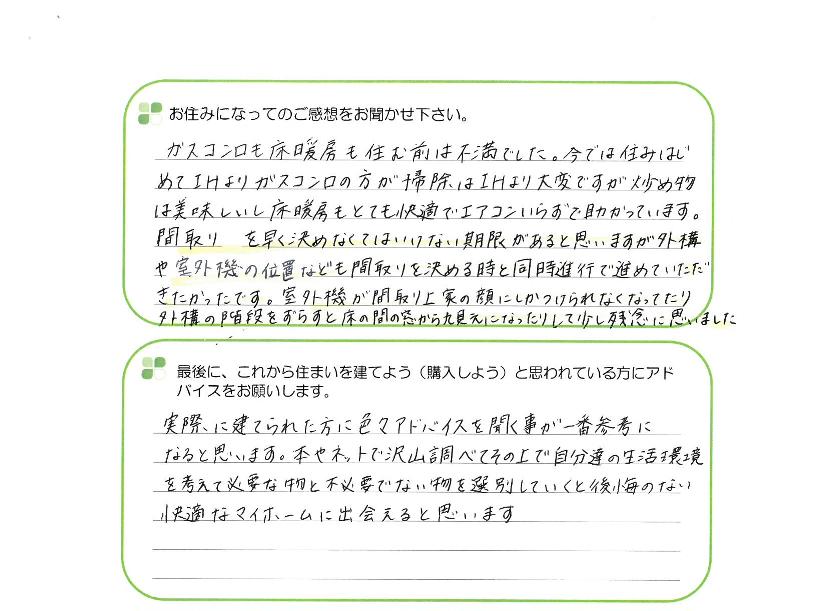 お住みになってのご感想をお聞かせ下さい。
ガスコンロも床暖房も住む前は不満でした。今では住みはじ
めてIHよりガスコンロの方が掃除はIHより大変ですが炒め物
は美味しいし床暖房もとても快適でエアコンいらずで助かっています。
間取り を早く決めなくてはいけない期限があると思いますが外構
や室外機の位置なども間取りを決める時と同時進行で進めていただ
きたかったです。室外機が間取り上家の顔にしかつけられなくなってたり
外構の階段をずらすと床の間の窓から丸見えになったりして少し残念に思いました
最後に、これから住まいを建てよう（購入しよう）と思われている方にアド
バイスをお願いします。
実際に建てられた方に色々アドバイスを聞く事が一番参考に
なると思います。本やネットで沢山調べてその上で自分達の生活環境
を考えて必要な物と不必要でない物を選別していくと後悔のない
快適なマイホームに出会えると思います